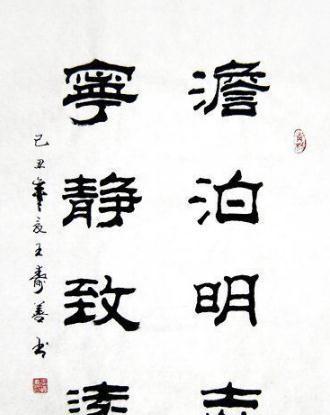 澹泊明志
寧靜致遠
己丑寒夜王壽善书